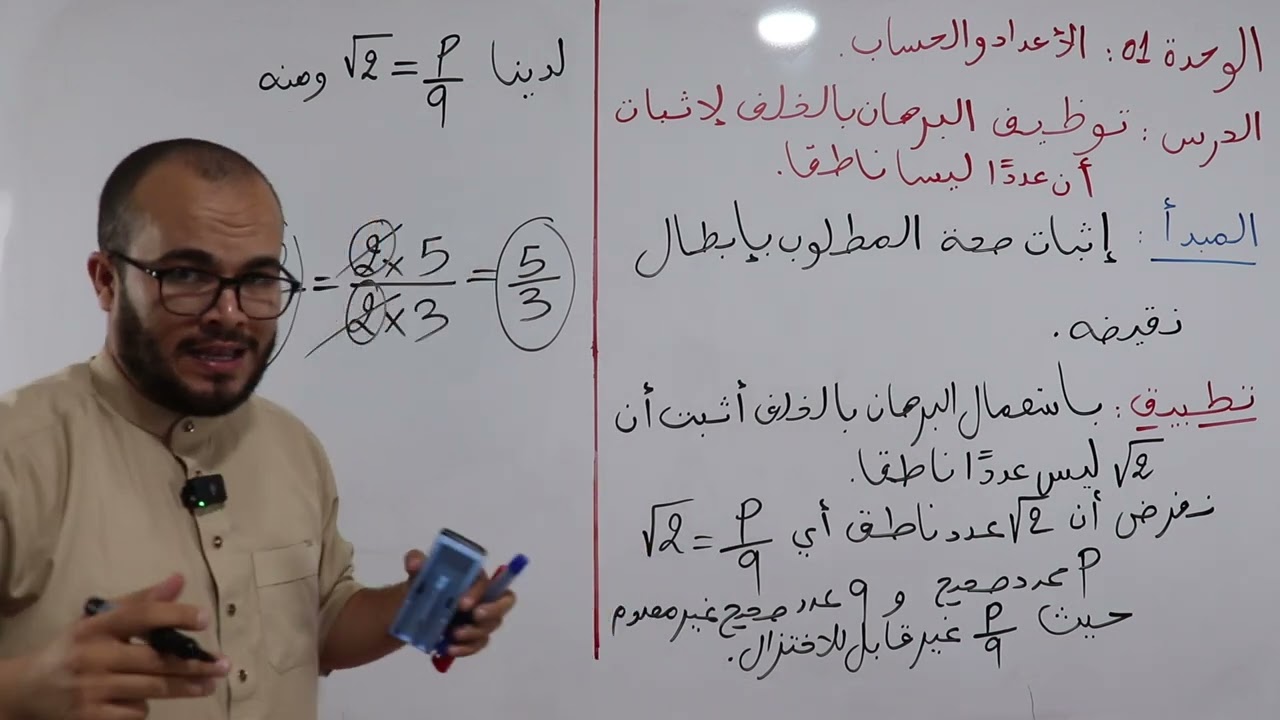 الوحدة 01: الأعداد والحساب.
الدرس: توظيف البرهان بالخلف لإثبات
أن عددًا ليسا ناطقا.
المبدأ: إثبات صحة المطلوب بإبطال
نقيضه.
تطبيق: باستعمال البرهان بالخلف أثبت أن
√2 ليس عددًا ناطقا.
نفرض أن √2 عدد ناطق أي √2 = P/q
حيث P عدد صحيح و q عدد صحيح غير معدوم
P/q غير قابل للاختزال.
لدينا √2 = P/q ومنه
= 2×5/2×3 = 5/3